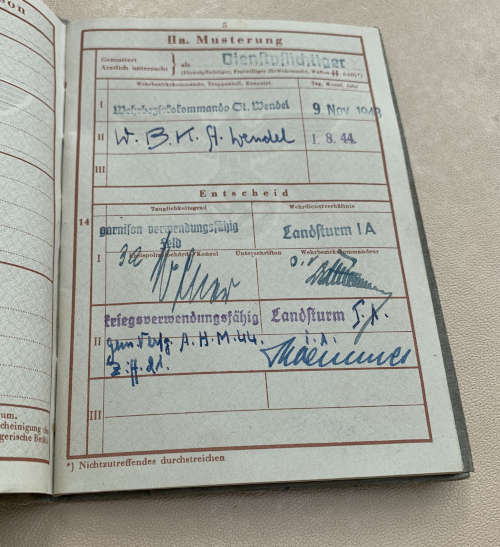 son
5
IIa. Musterung
Gemustert
Ärztlich untersucht } als Dienstpflichtiger
(Dienstpflichtiger, Freiwilliger für Wehrmacht, Waffen-SS
Wehrbezirkskommando, Truppenteil, Konsulat. Tag, Monat, Jahr
I Wehrbezirkskommando St. Wendel 9. Nov. 1943
II W. B. K. St. Wendel 1. 8. 44.
III
Entscheid
14
Tauglichkeitsgrad Wehrdienstverhältnis
garnison verwendungsfähig Landsturm I A
Feld
I Kreispolizeibehörde/Konsul Unterschriften Wehrbezirkskommandeur
kriegsverwendungsfähig Landsturm I. A.
II gem. Verfg. A. H. M. 44.
Ziff. 21.
III
um.
cheinigung
gerische Be
*) Nichtzutreffendes durchstreichen